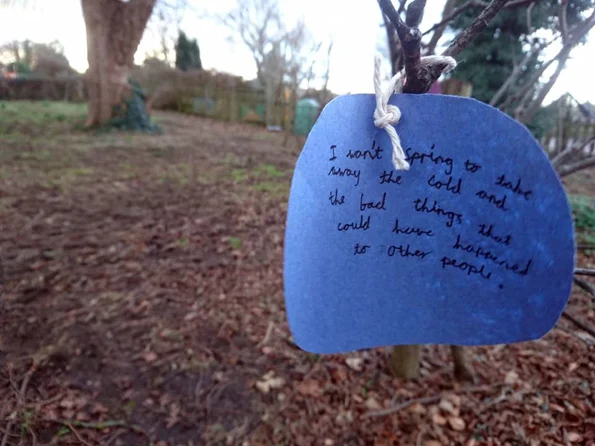 I wan't spring to take
away the cold and
the bad things that
could have happened
to other people.